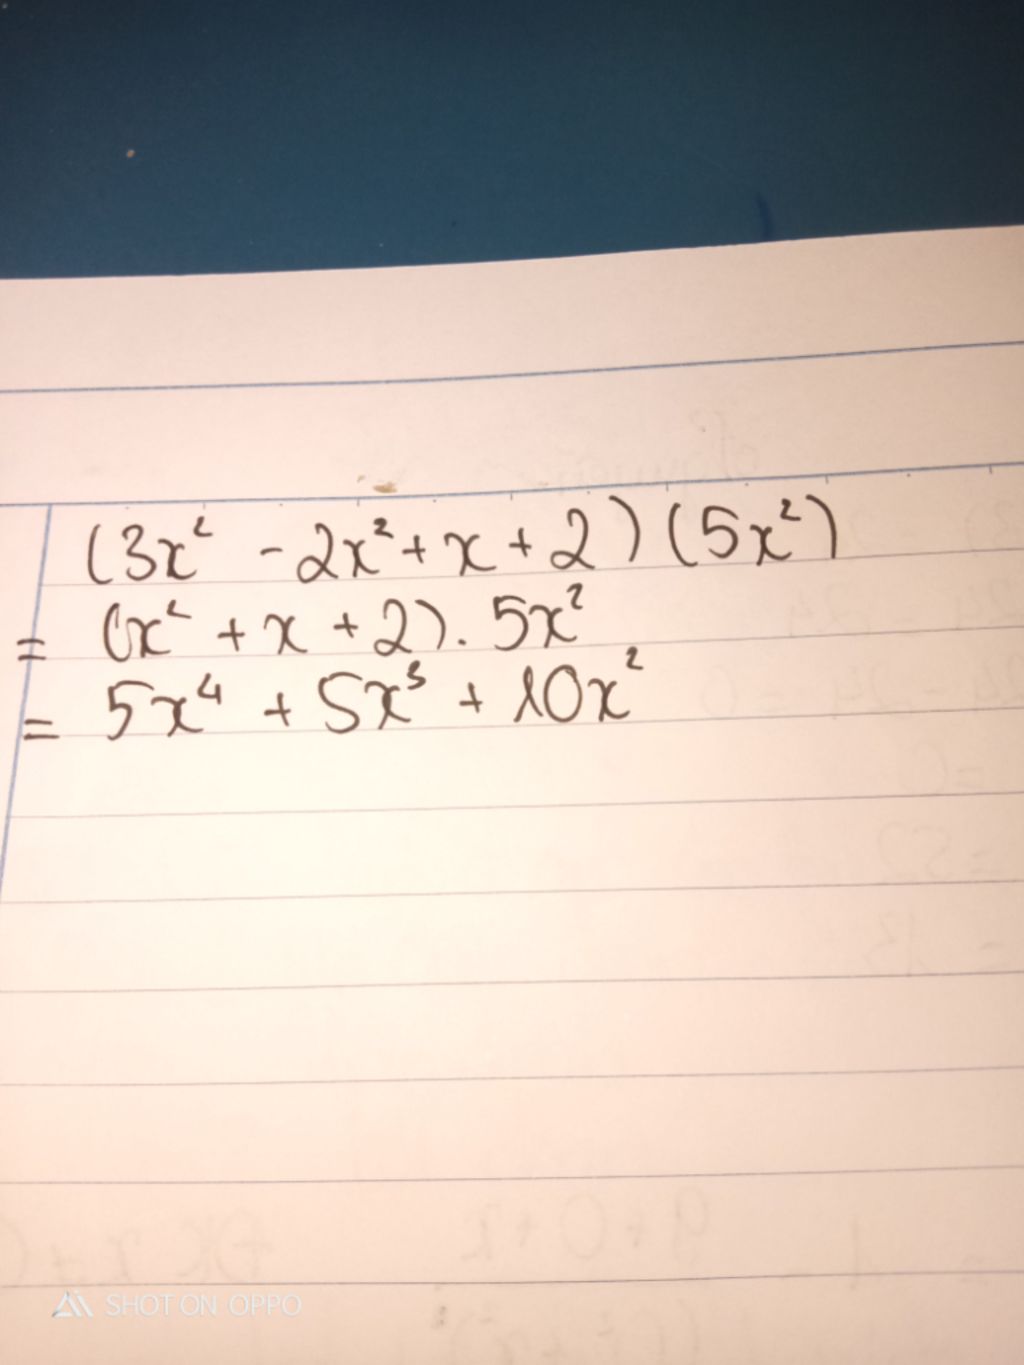 (3x² - 2x² + x + 2)(5x²)
= (x² + x + 2) . 5x²
= 5x⁴ + 5x³ + 10x²
SHOT ON OPPO